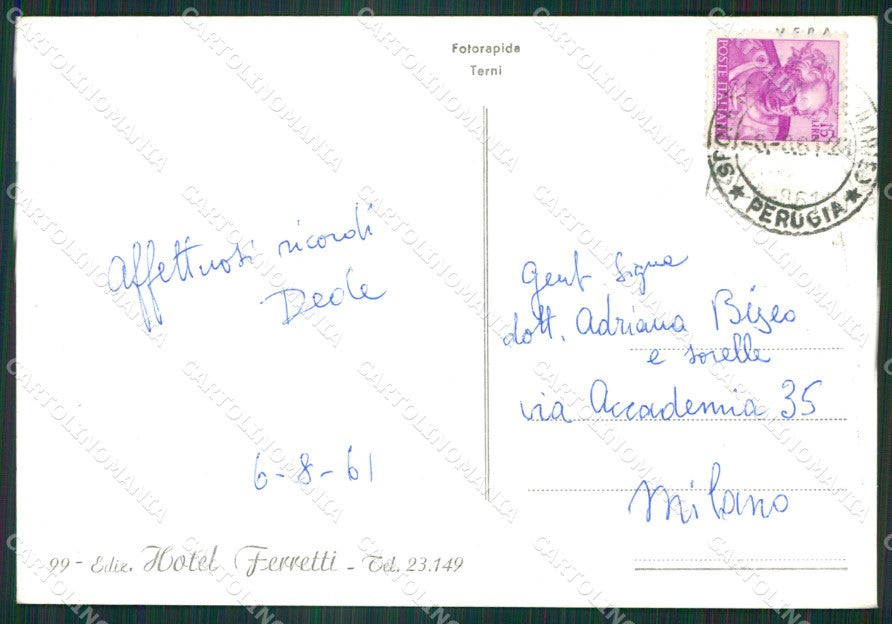 Fotorapida
Terni
POSTE ITALIANE
LIRE 15
PERUGIA
Affettuosi ricordi
Dede
6-8-61
Gent Sigra
dott. Adriana Bizeo
e sorelle
via Accademia 35
Milano
99 - Edie. Hotel Ferretti - Tel. 23.149
CARTOLINOMANIA